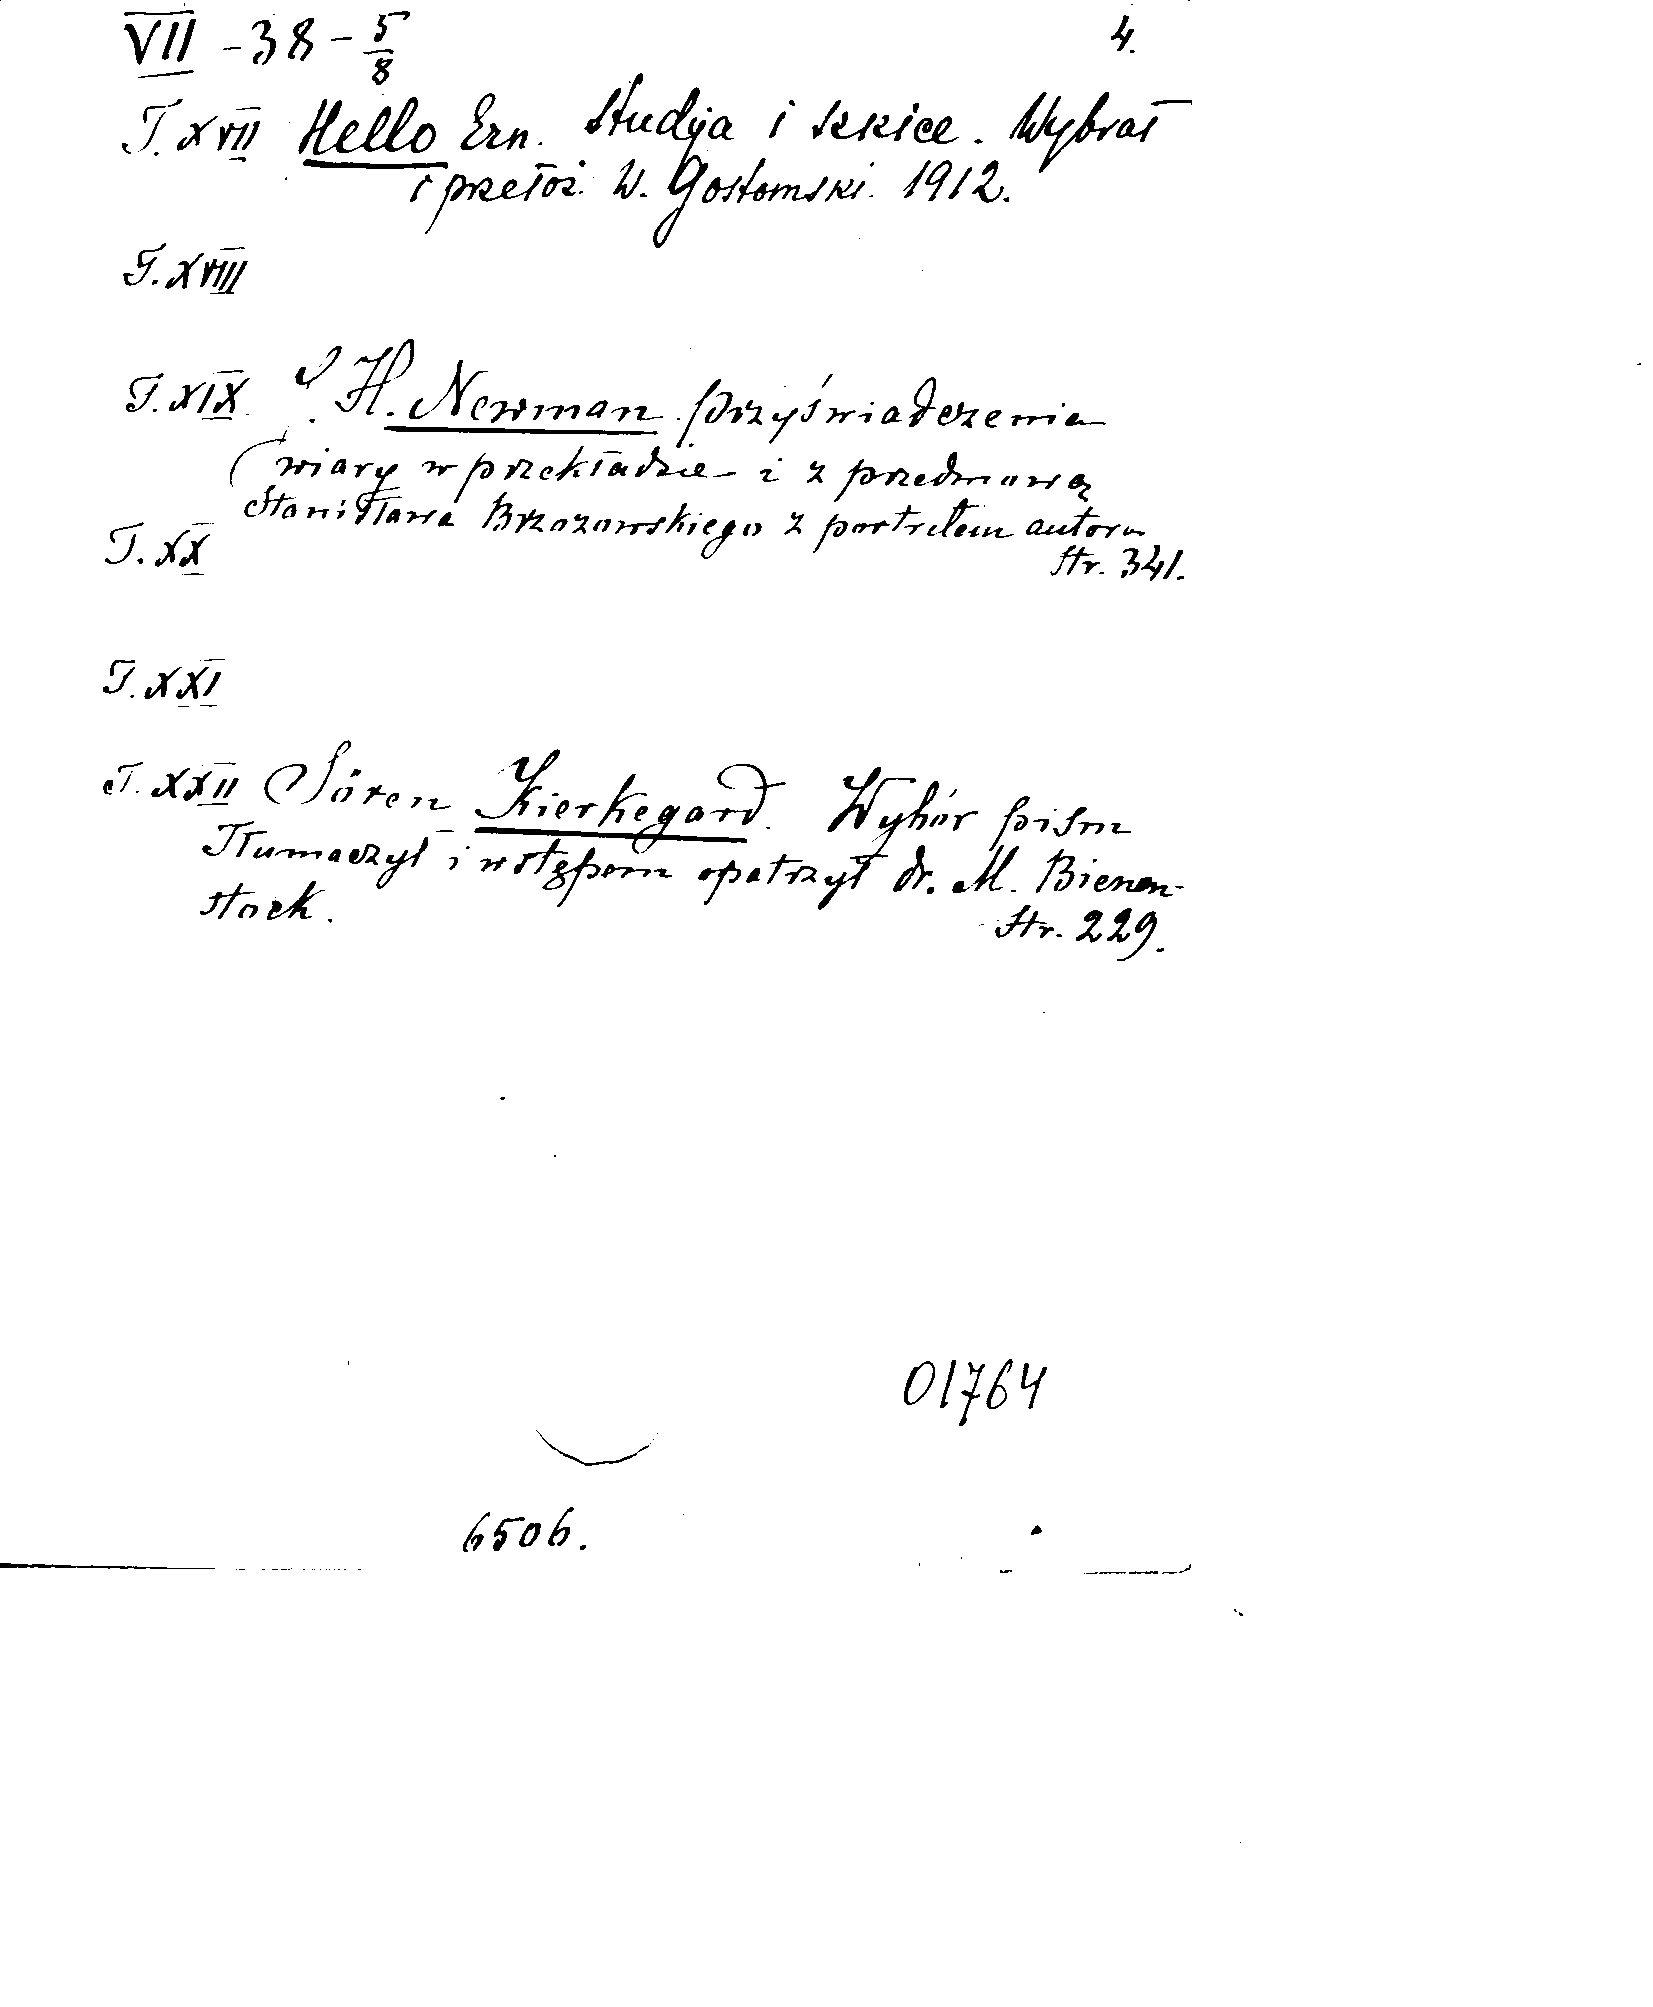 VII - 38 - 5/8 4.
T. XVII Hello Ern. Studja i szkice. Wybrał
i przełoż. W. Gostomski. 1912.
T. XVIII
T. XIX J. H. Newman przyświadczenia
wiary w przekładzie i z przedmową
Stanisława Brzozowskiego z portretem autora
T. XX
Str. 341.
T. XXI
T. XXII Sören Kierkegard. Wybór pism
Tłumaczył i wstępem opatrzył dr. M. Bienen-
stock.
Str. 229.
01764
6506.